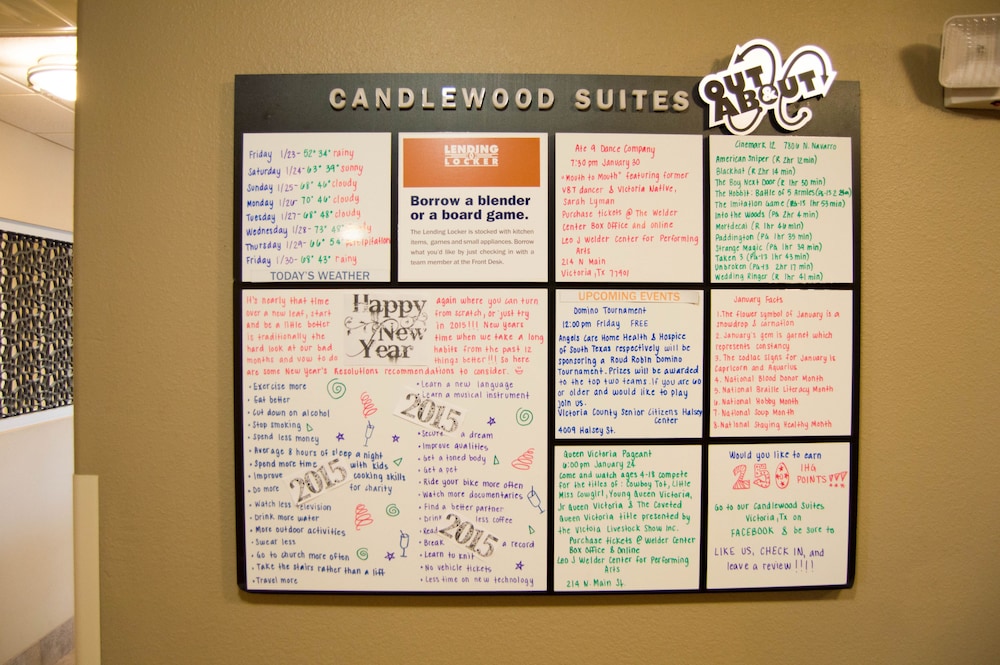 CANDLEWOOD SUITES
OUT & ABOUT
Friday 1/23- 52° 34° rainy
Saturday 1/24- 63° 39° sunny
Sunday 1/25- 68° 46° cloudy
Monday 1/26- 70° 46° cloudy
Tuesday 1/27- 68° 48° cloudy
Wednesday 1/28- 73° 48°
Thursday 1/29- 66° 54° precipitation
Friday 1/30- 68° 43° rainy
TODAY'S WEATHER
LENDING
LOCKER
Borrow a blender
or a board game.
The Lending Locker is stocked with kitchen
items, games and small appliances. Borrow
what you'd like by just checking in with a
team member at the Front Desk.
Ate 9 Dance Company
7:30 pm January 30
"Mouth to Mouth" featuring former
VBT dancer & Victoria Native,
Sarah Lyman
Purchase tickets @ The Welder
Center Box Office and online
Leo J Welder Center for Performing
Arts
214 N. Main
Victoria, Tx 77901
Cinemark 12 7806 N. Navarro
American Sniper (R 2hr 12min)
Blackhat (R 2hr 14 min)
The Boy Next Door (R 1hr 30 min)
The Hobbit: Battle of 5 Armies (PG-13 2:
The Imitation Game (PG-13 1hr 53min)
Into the Woods (PG 2hr 4 min)
Mortdecai (R 1hr 46 min)
Paddington (PG 1hr 35 min)
Strange Magic (PG 1hr 39 min)
Taken 3 (PG-13 1hr 43 min)
Unbroken (PG-13 2hr 17 min)
Wedding Ringer (R 1hr 41 min)
It's nearly that time again where you can turn
over a new leaf, start from scratch, or just try
and be a little better in 2015!!! New years
is traditionally the time when we take a long
hard look at our bad habits from the past 12
months and vow to do things better!!! So here
are some New Year's Resolutions recommendations to consider.
Happy
New
Year
• Exercise more
• Eat better
• Cut down on alcohol
• Stop smoking
• Spend less money
• Average 8 hours of sleep a night
• Spend more time with kids
• Improve cooking skills
• Do more for charity
• Watch less television
• Drink more water
• More outdoor activities
• Swear less
• Go to church more often
• Take the stairs rather than a lift
• Travel more
2015
• Learn a new language
• Learn a musical instrument
2015
• Secure a dream
• Improve qualities
• Get a toned body
• Get a pet
• Ride your bike more often
• Watch more documentaries
• Find a better partner
• Drink less coffee
• Read
• Break a record
• Learn to knit
• No vehicle tickets
• Less time on new technology
2015
UPCOMING EVENTS
Domino Tournament
12:00 pm Friday FREE
Angels Care Home Health & Hospice
of South Texas respectively will be
sponsoring a Roud Robin Domino
Tournament. Prizes will be awarded
to the top two teams. If you are 60
or older and would like to play
join us.
Victoria County Senior Citizens Halsey
Center
4009 Halsey St.
January Facts
1. The flower symbol of January is a
snowdrop & carnation
2. January's gem is garnet which
represents constancy
3. The zodiac signs for January is
Capricorn and Aquarius
4. National Blood Donor Month
5. National Braille Literacy Month
6. National Hobby Month
7. National Soup Month
8. National Staying Healthy Month
Queen Victoria Pageant
6:00 pm January 24
Come and watch ages 4-18 compete
for the titles of: Cowboy Tot, Little
Miss Cowgirl, Young Queen Victoria,
Jr Queen Victoria & The Coveted
Queen Victoria title presented by
the Victoria Livestock Show Inc.
Purchase tickets @ Welder Center
Box Office & Online
Leo J Welder Center for Performing
Arts
214 N. Main St.
Would you like to earn
250 IHG
POINTS
Go to our Candlewood Suites
Victoria, Tx on
FACEBOOK & be sure to
LIKE US, CHECK IN, and
leave a review!!!!